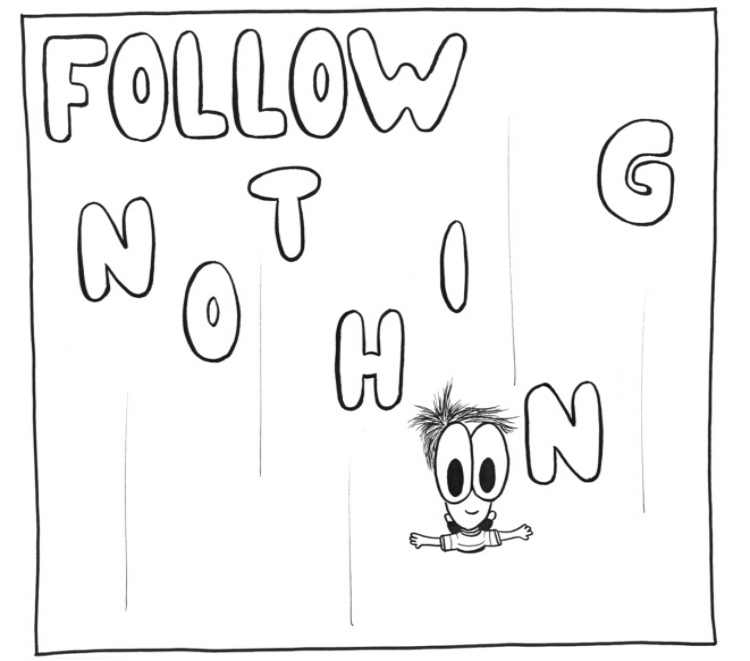 FOLLOW
NOTHING